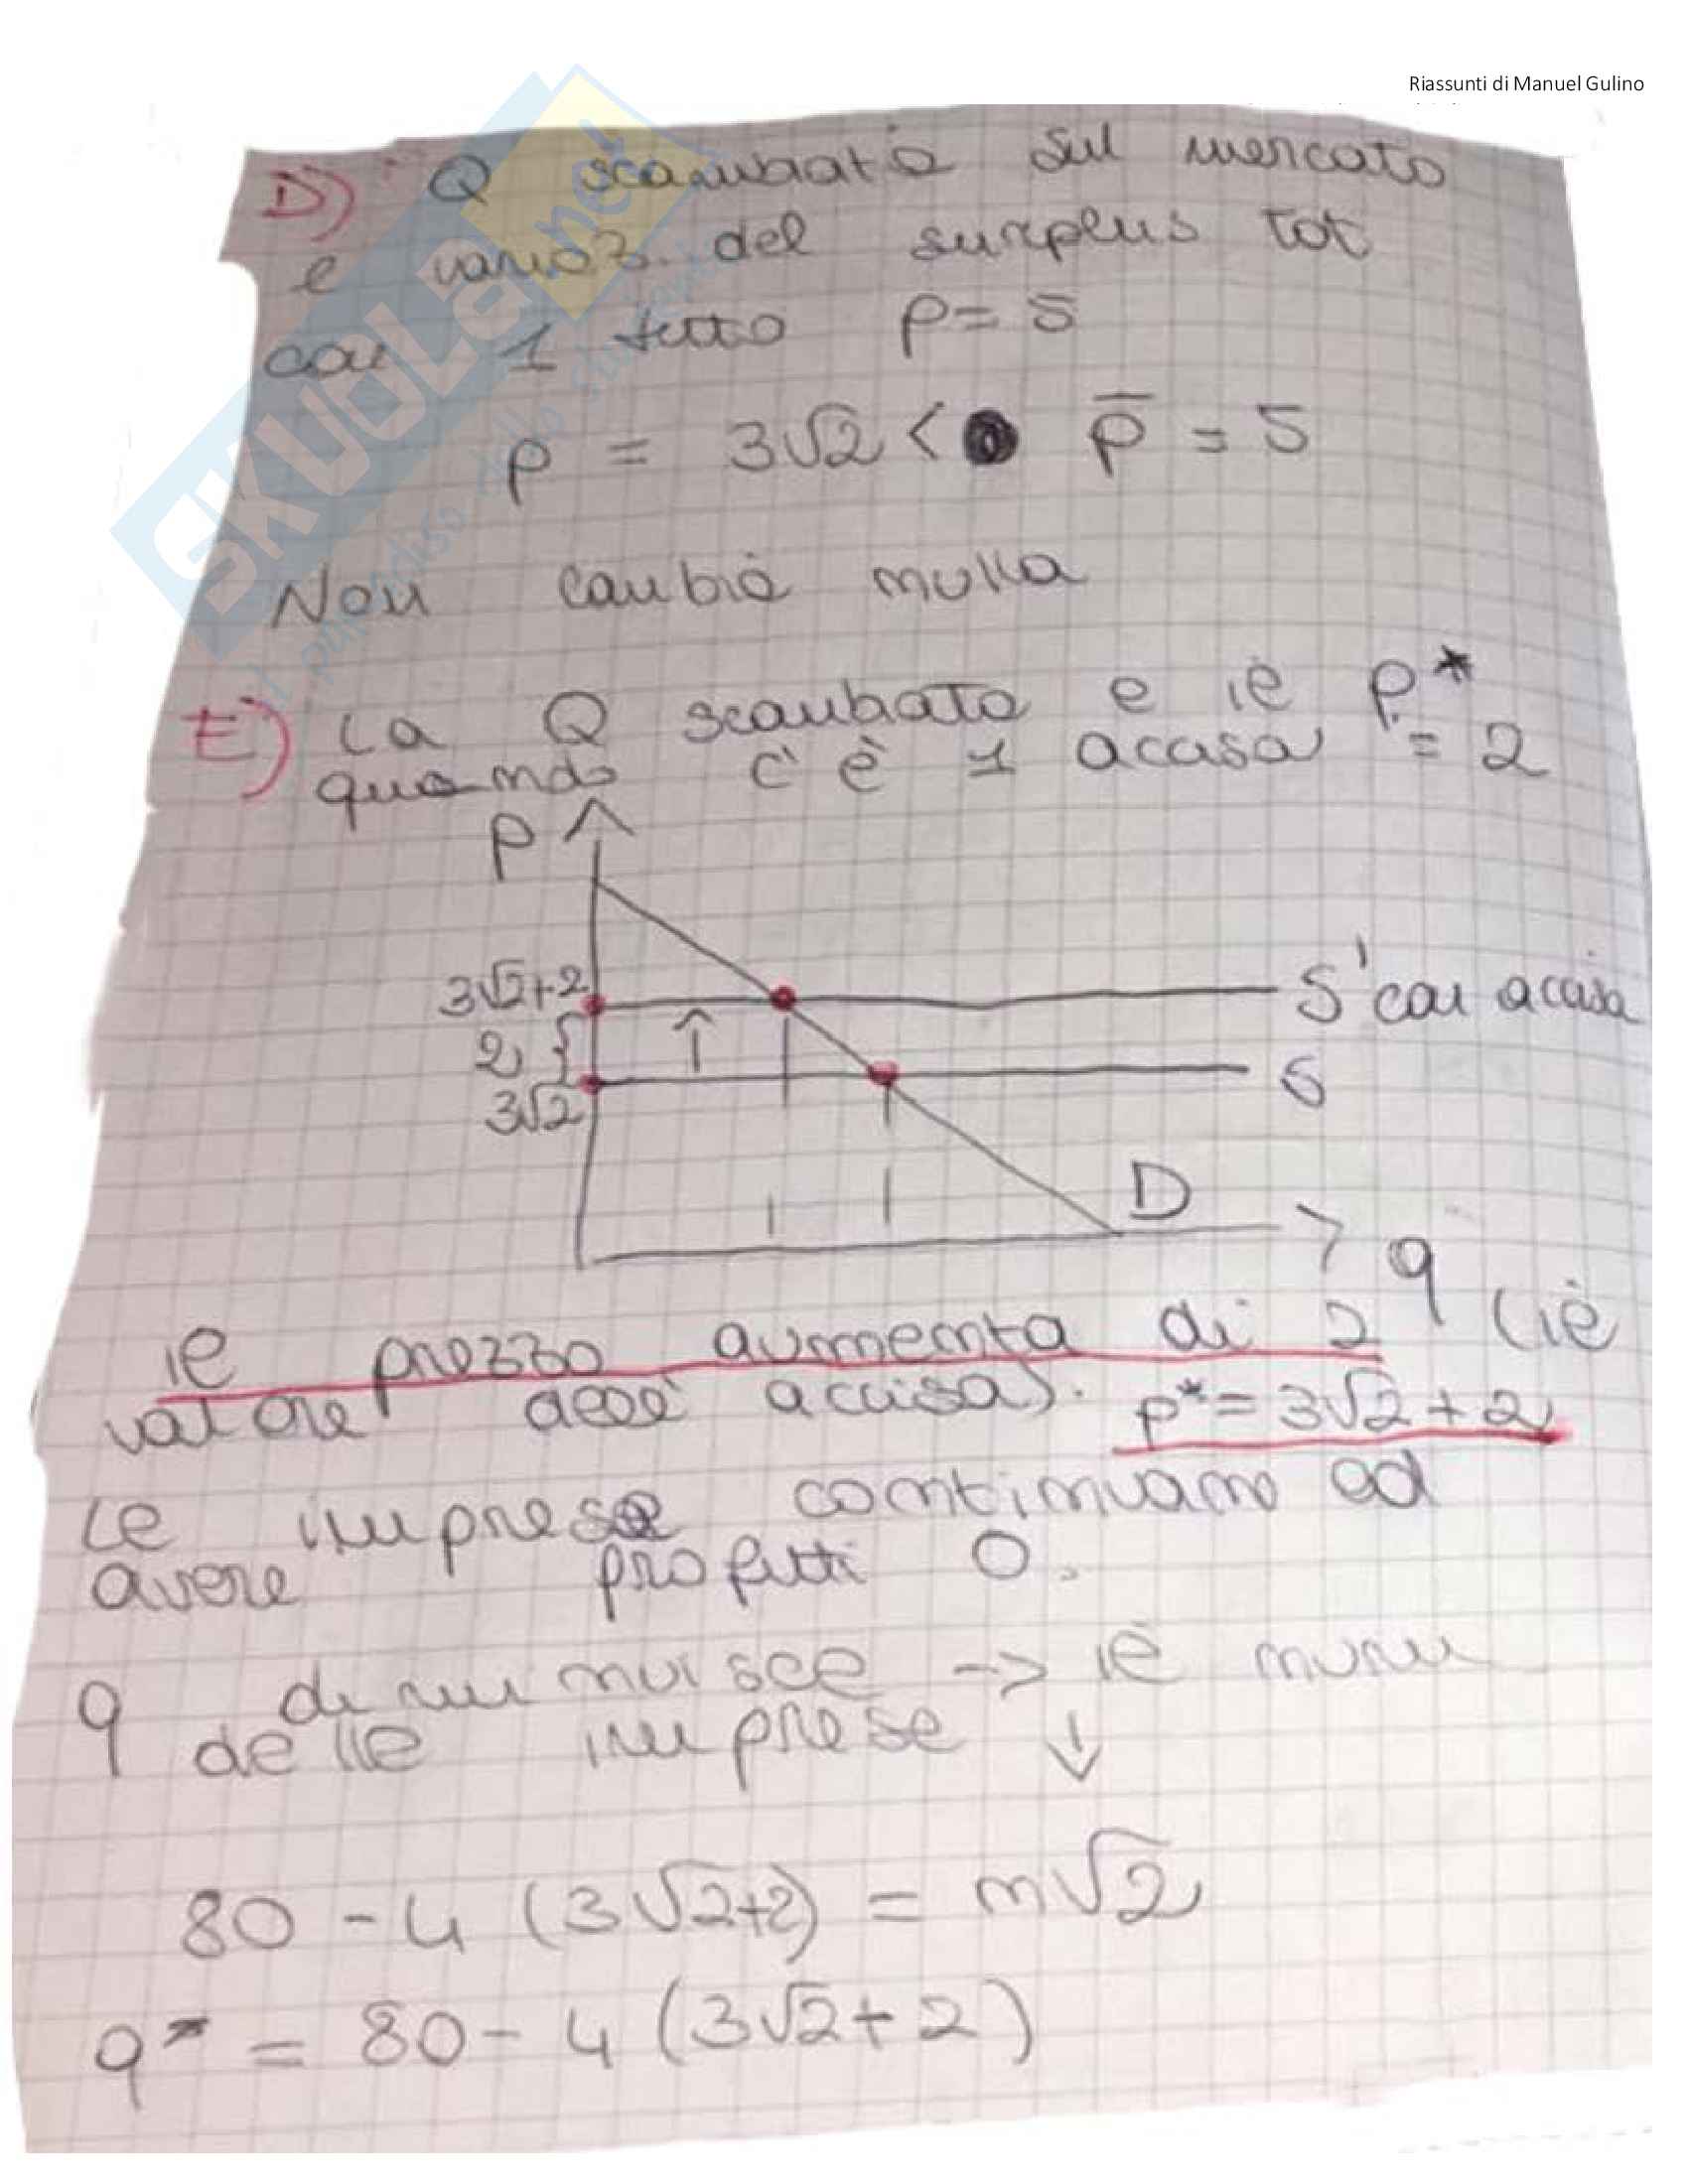 Riassunti di Manuel Gulino
SKUOLa.net
il paradiso dello studente
D) Q scambiata sul mercato
e variaz. del surplus tot
con 1 tetto P = 5
p = 3√2 < p̄ = 5
Non cambia nulla
E) La Q scambiata e il P*
quando c'è 1 accisa = 2
P
3√2+2
2
3√2
S' con accisa
S
D
q
Il prezzo aumenta di 2 (il
valore dell'accisa). p* = 3√2 + 2
Le imprese continuano ad
avere profitti 0.
q diminuisce -> il num
delle imprese ↓
80 - 4 (3√2+2) = n√2
q* = 80 - 4 (3√2 + 2)